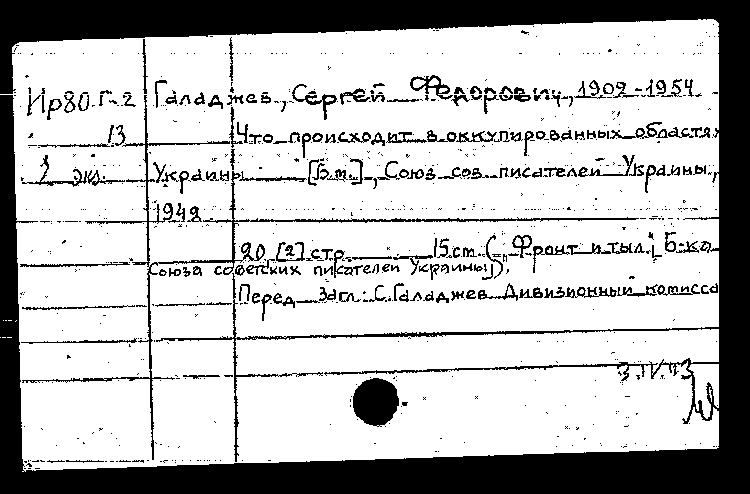 Ир80 Г-2 Галаджев, Сергей Федорович, 1902-1954
13 Что происходит в оккупированных областях
экз. Украины [Б.м.], Союз сов писателей Украины,
1942
20 [2] стр 15 cm („Фронт и тыл", Б-ка
Союза советских писателей Украины").
Перед загл: С. Галаджев Дивизионный комисса
3.IV.43